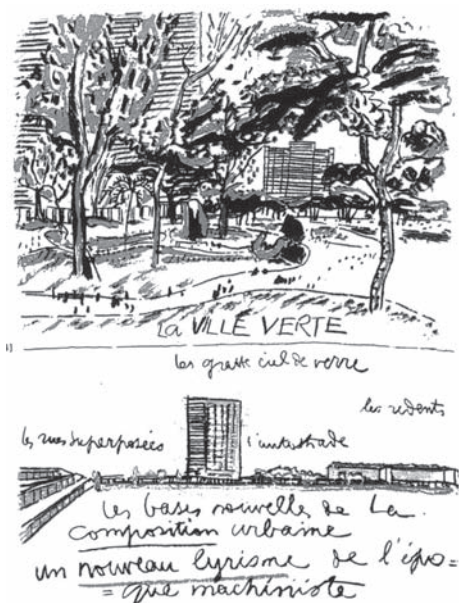 La VILLE VERTE
les gratte ciel de verre
les redents
les rues superposées
l'autostrade
les bases nouvelles de la
composition urbaine
un nouveau lyrisme de l'épo=
=que machiniste